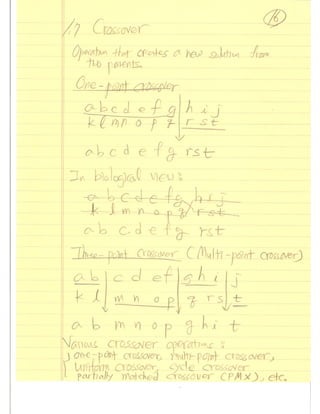 16
1.7 Crossover
Operation that creates a new solution from
two parents.
One-point crossover
a b c d e f g h i j
k l m n o p q r s t
a b c d e f g r s t
In biological view:
a b c d e f g h i j
k l m n o p q r s t
a b c d e f g r s t
Three-point crossover (Multi-point crossover)
a b c d e f g h i j
k l m n o p q r s t
a b m n o p g h i t
Various crossover operations:
one-point crossover, multi-point crossover,
uniform crossover, cycle crossover
partially matched crossover (PMX), etc.